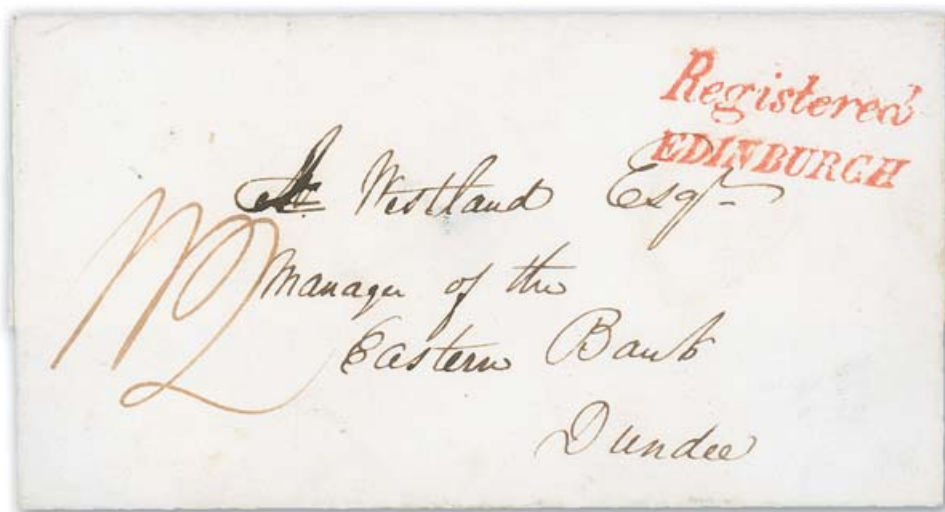 Registered
EDINBURGH
Westland Esqr
Manager of the
Eastern Bank
Dundee